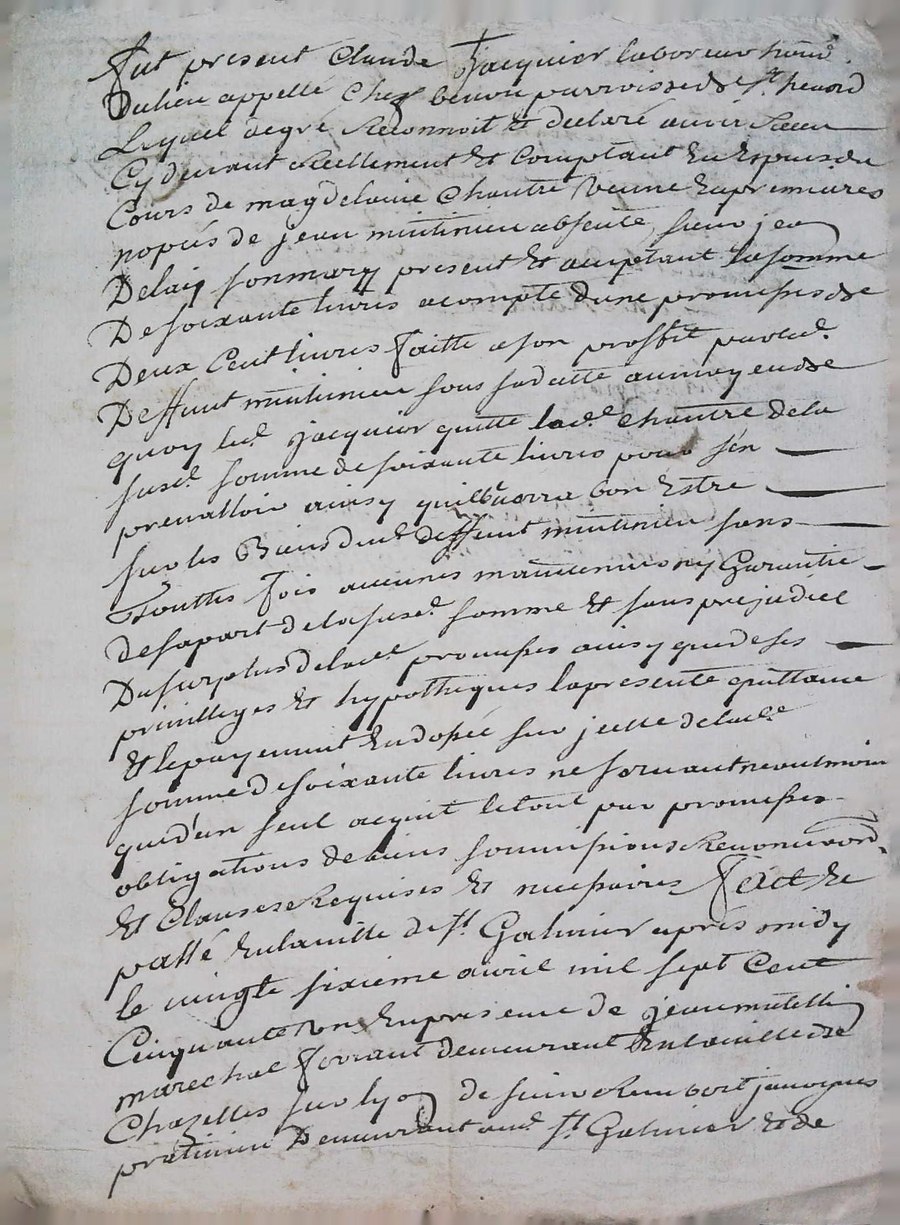 Fut present Claude Jacquier laboureur
Du lieu appellé chez benou parroisse de st.
Lequel de gré Reconnoit Et declaré avoir Receu
Cy devant Reellement Et Comptant En Espesses du
Cours de magdelaine Chantre veuve En premieres
nopces de jean mintinieu absente, sieur jean
Delay son mary present Et aceptant la somme
De soixante livres acompte dune promesses de
Deux Cent livres faitte a son proffit par led.
Deffunt mintinieu sous sa datte au moyen de
quoy led. jacquier quitte lad.e Chantre de la
susd. somme de soixante livres pour sen
prevalloir ainsy quil verra bon Estre
sur les Biens dud. deffunt mintinieu sans
Touttes fois aucunes maintenues ny Garantie
de sa part de la susd. somme Et sans prejudice
Du surplus de lad.e promesses ainsy que de ses
privilleges Et hypotheques la presente quittance
Et le payement Endossé sur jcelle de lad.e
somme De soixante livres ne servant neantmoin
qu'd'un seul acquit le tout par promesses
obligations de biens soumissions Renonciaon.
Et Clauses Requises Et necessaires Fait Et
passé En la ville de st. Galmier apres midy
le vingt sixieme avril mil sept Cent
Cinquante En presence de jean
marechal ferrant demeurant En la ville de
Chazelles sur lyon de sieur Rembert javogues
praticien Demeurant aud. st. Galmier Et de